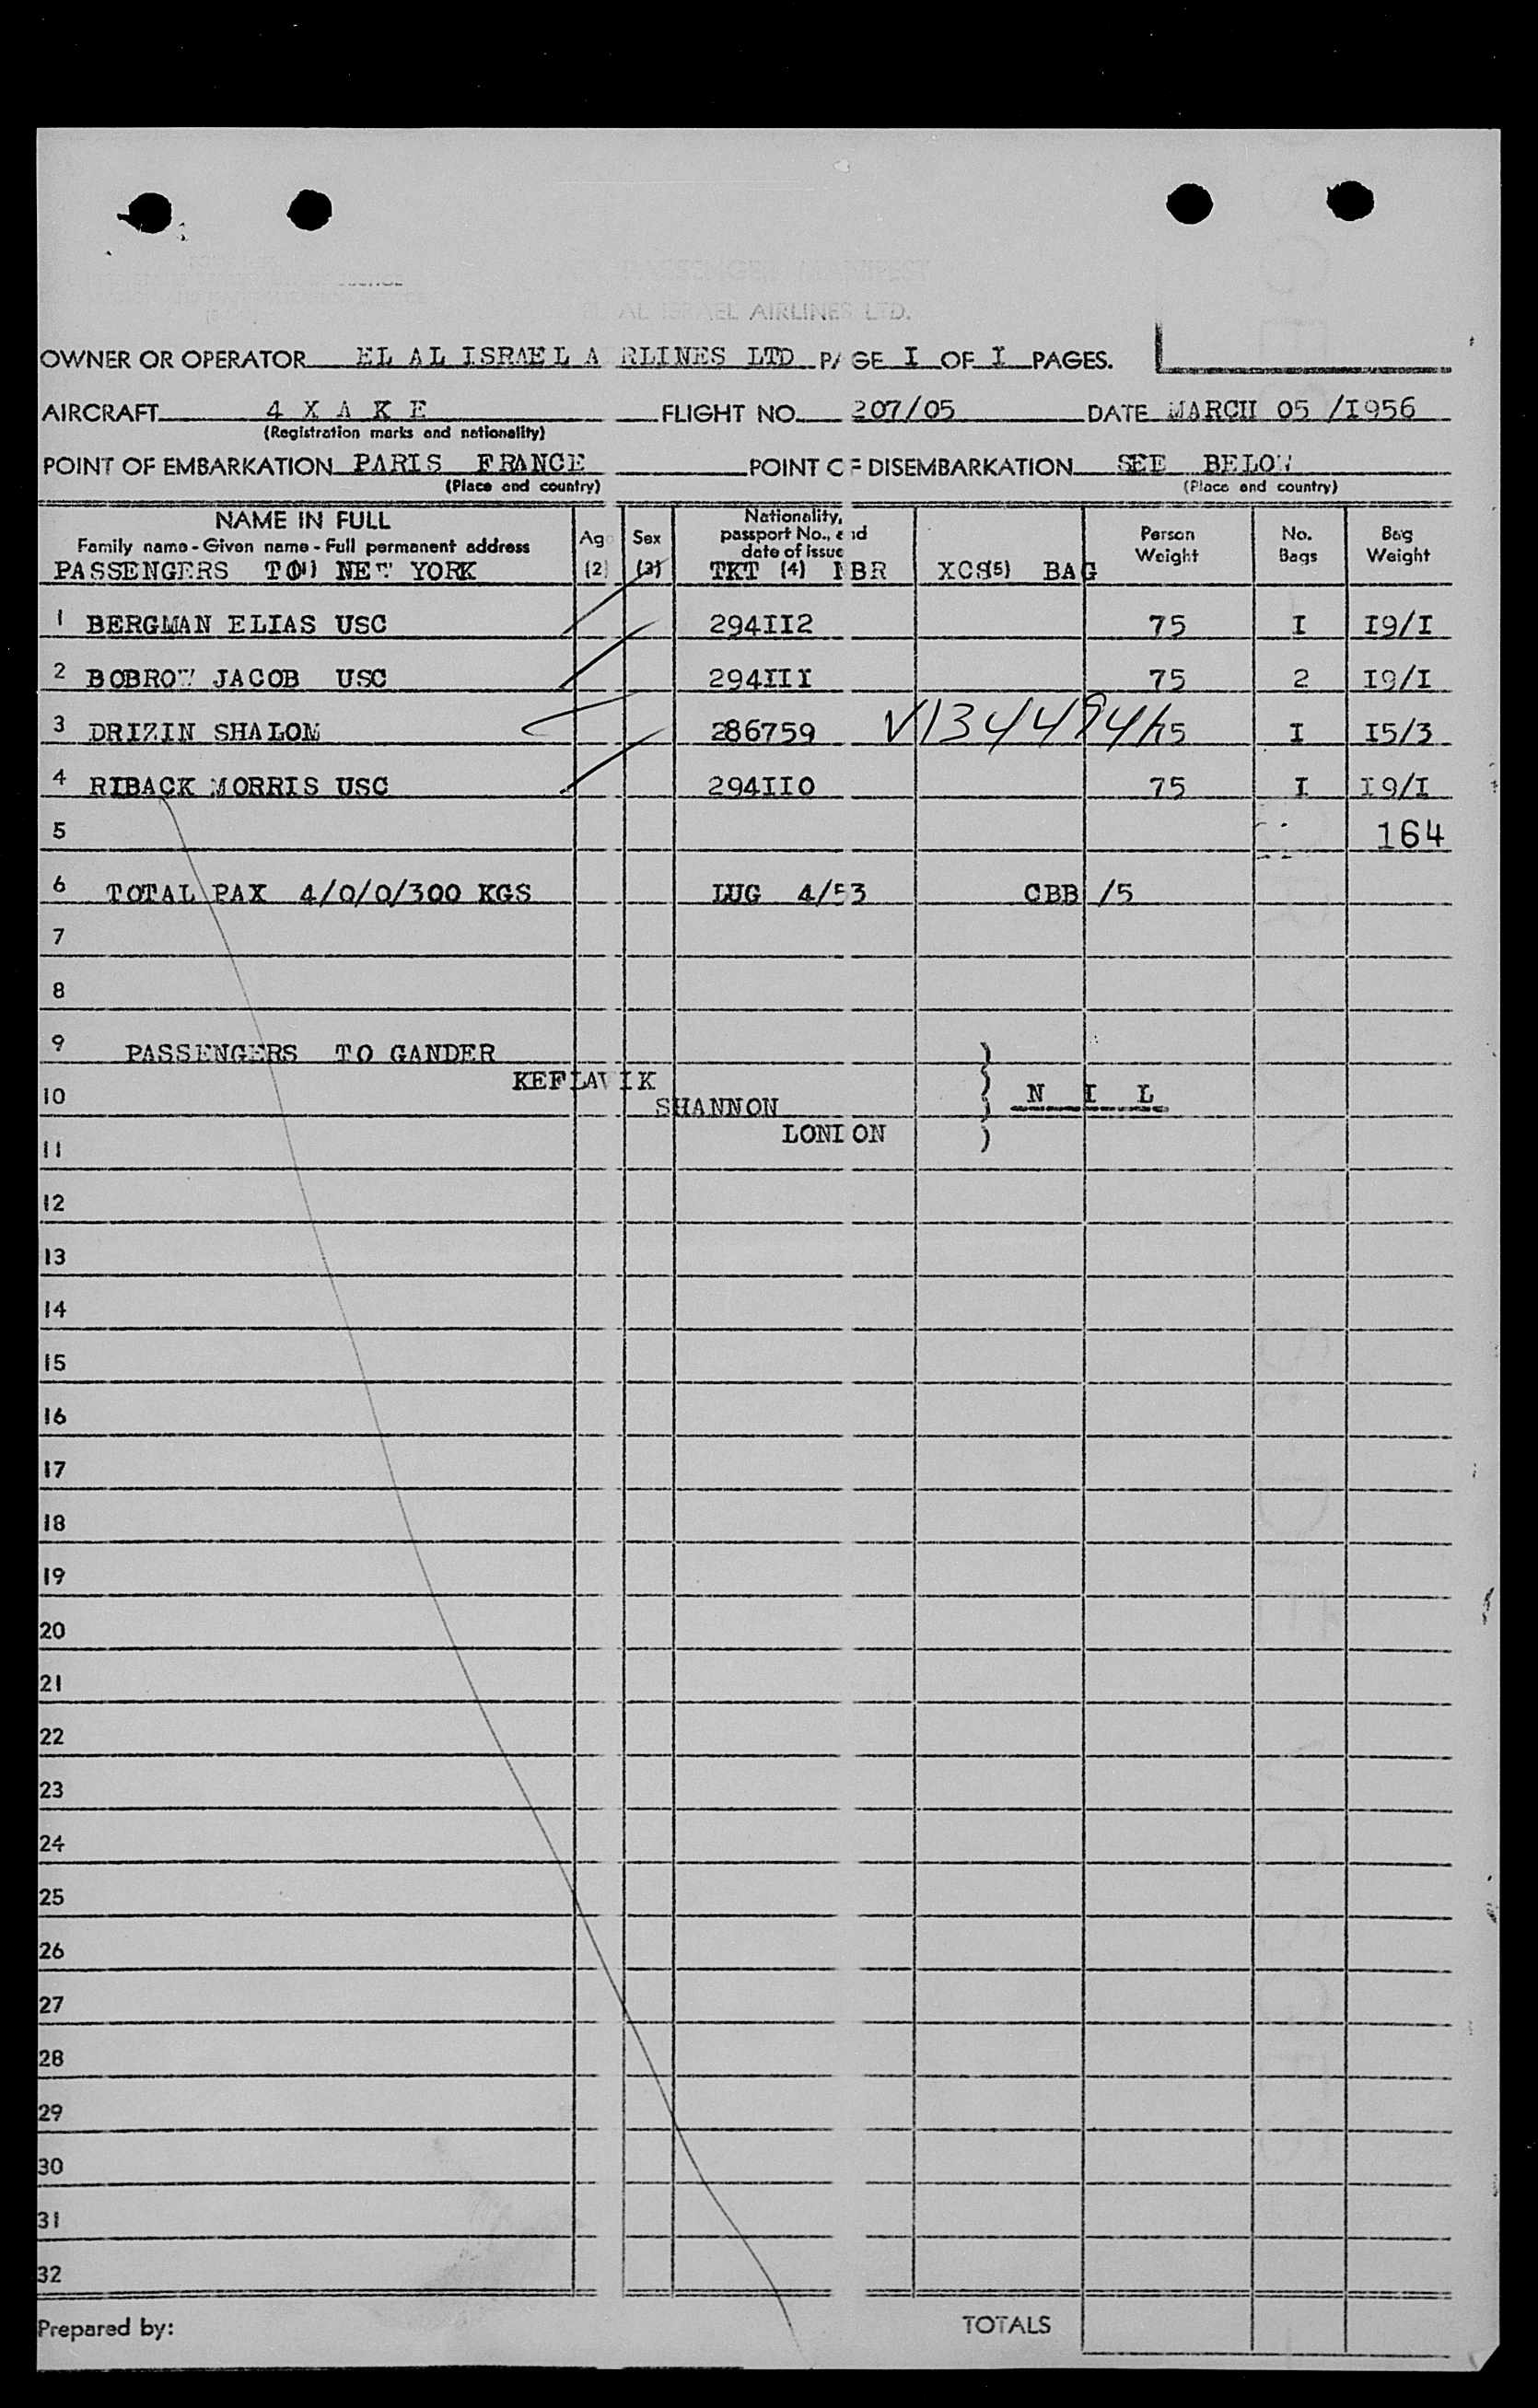 PASSENGER MANIFEST
EL AL ISRAEL AIRLINES LTD.
OWNER OR OPERATOR EL AL ISRAEL A RLINES LTD PAGE I OF I PAGES.
AIRCRAFT 4 X A K E FLIGHT NO. 207/05 DATE MARCH 05 /I956
(Registration marks and nationality)
POINT OF EMBARKATION PARIS FRANCE POINT OF DISEMBARKATION SEE BELOW
(Place and country) (Place and country)
NAME IN FULL Age Sex Nationality, passport No., and date of issue Person Weight No. Bags Bag Weight
Family name - Given name - Full permanent address
PASSENGERS TO NEW YORK (2) (3) TKT (4) NBR XCS (5) BAG
1 BERGMAN ELIAS USC 294II2 75 I I9/I
2 BOBROW JACOB USC 294III 75 2 I9/I
3 DRIZIN SHALOM 286759 V1344494 75 I I5/3
4 RIBACK MORRIS USC 294IIO 75 I I9/I
5 164
6 TOTAL PAX 4/0/0/300 KGS LUG 4/53 CBB /5
7
8
9 PASSENGERS TO GANDER )
KEFLAVIK )
10 SHANNON ) N I L
LONDON )
11
12
13
14
15
16
17
18
19
20
21
22
23
24
25
26
27
28
29
30
31
32
Prepared by: TOTALS